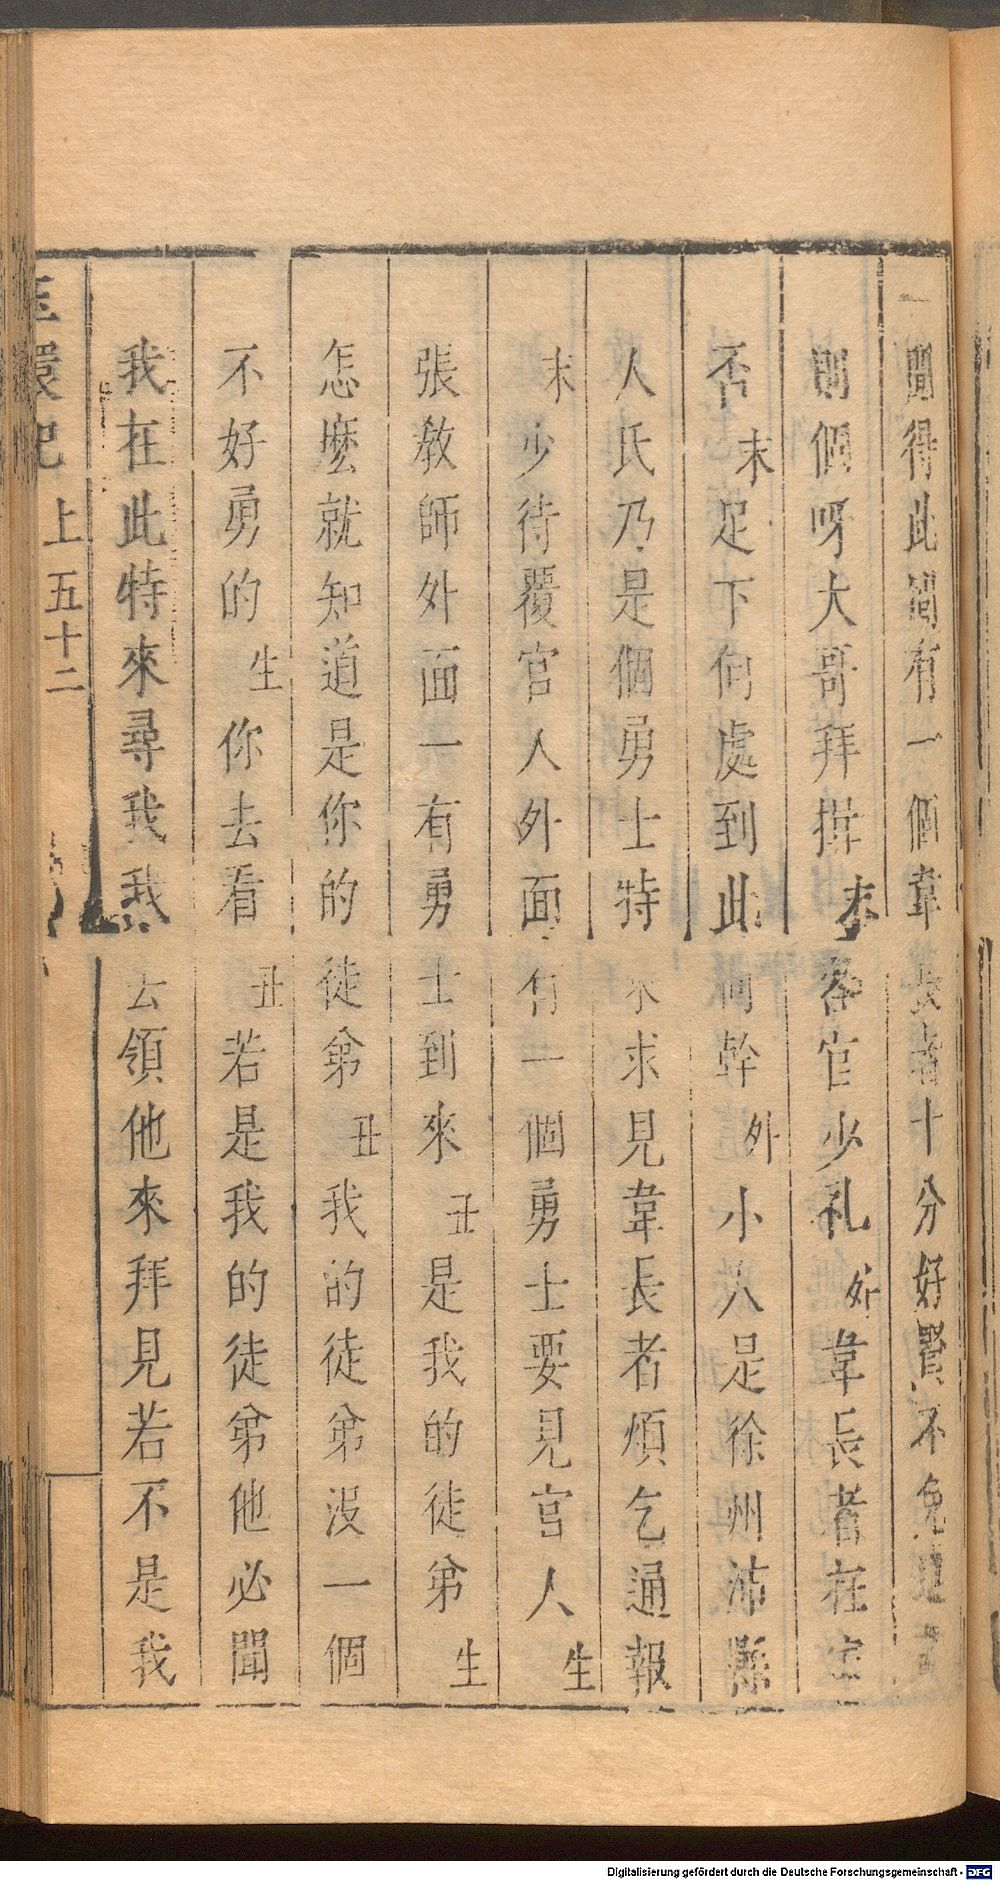 聞得此間有一個韋長者十分好賢不免進
個呀大哥拜揖末客官少礼外韋長者在
否末足下何處到此何幹外小人是徐州沛縣
人氏乃是個勇士特來求見韋長者煩乞通報
末少待覆官人外面有一個勇士要見官人生
張教師外面一有勇士到來丑是我的徒弟生
怎麼就知道是你的徒弟丑我的徒弟沒一個
不好勇的生你去看丑若是我的徒弟他必聞
我在此特來尋我我去領他來拜見若不是我
玉環記 上五十二
Digitalisierung gefördert durch die Deutsche Forschungsgemeinschaft - DFG